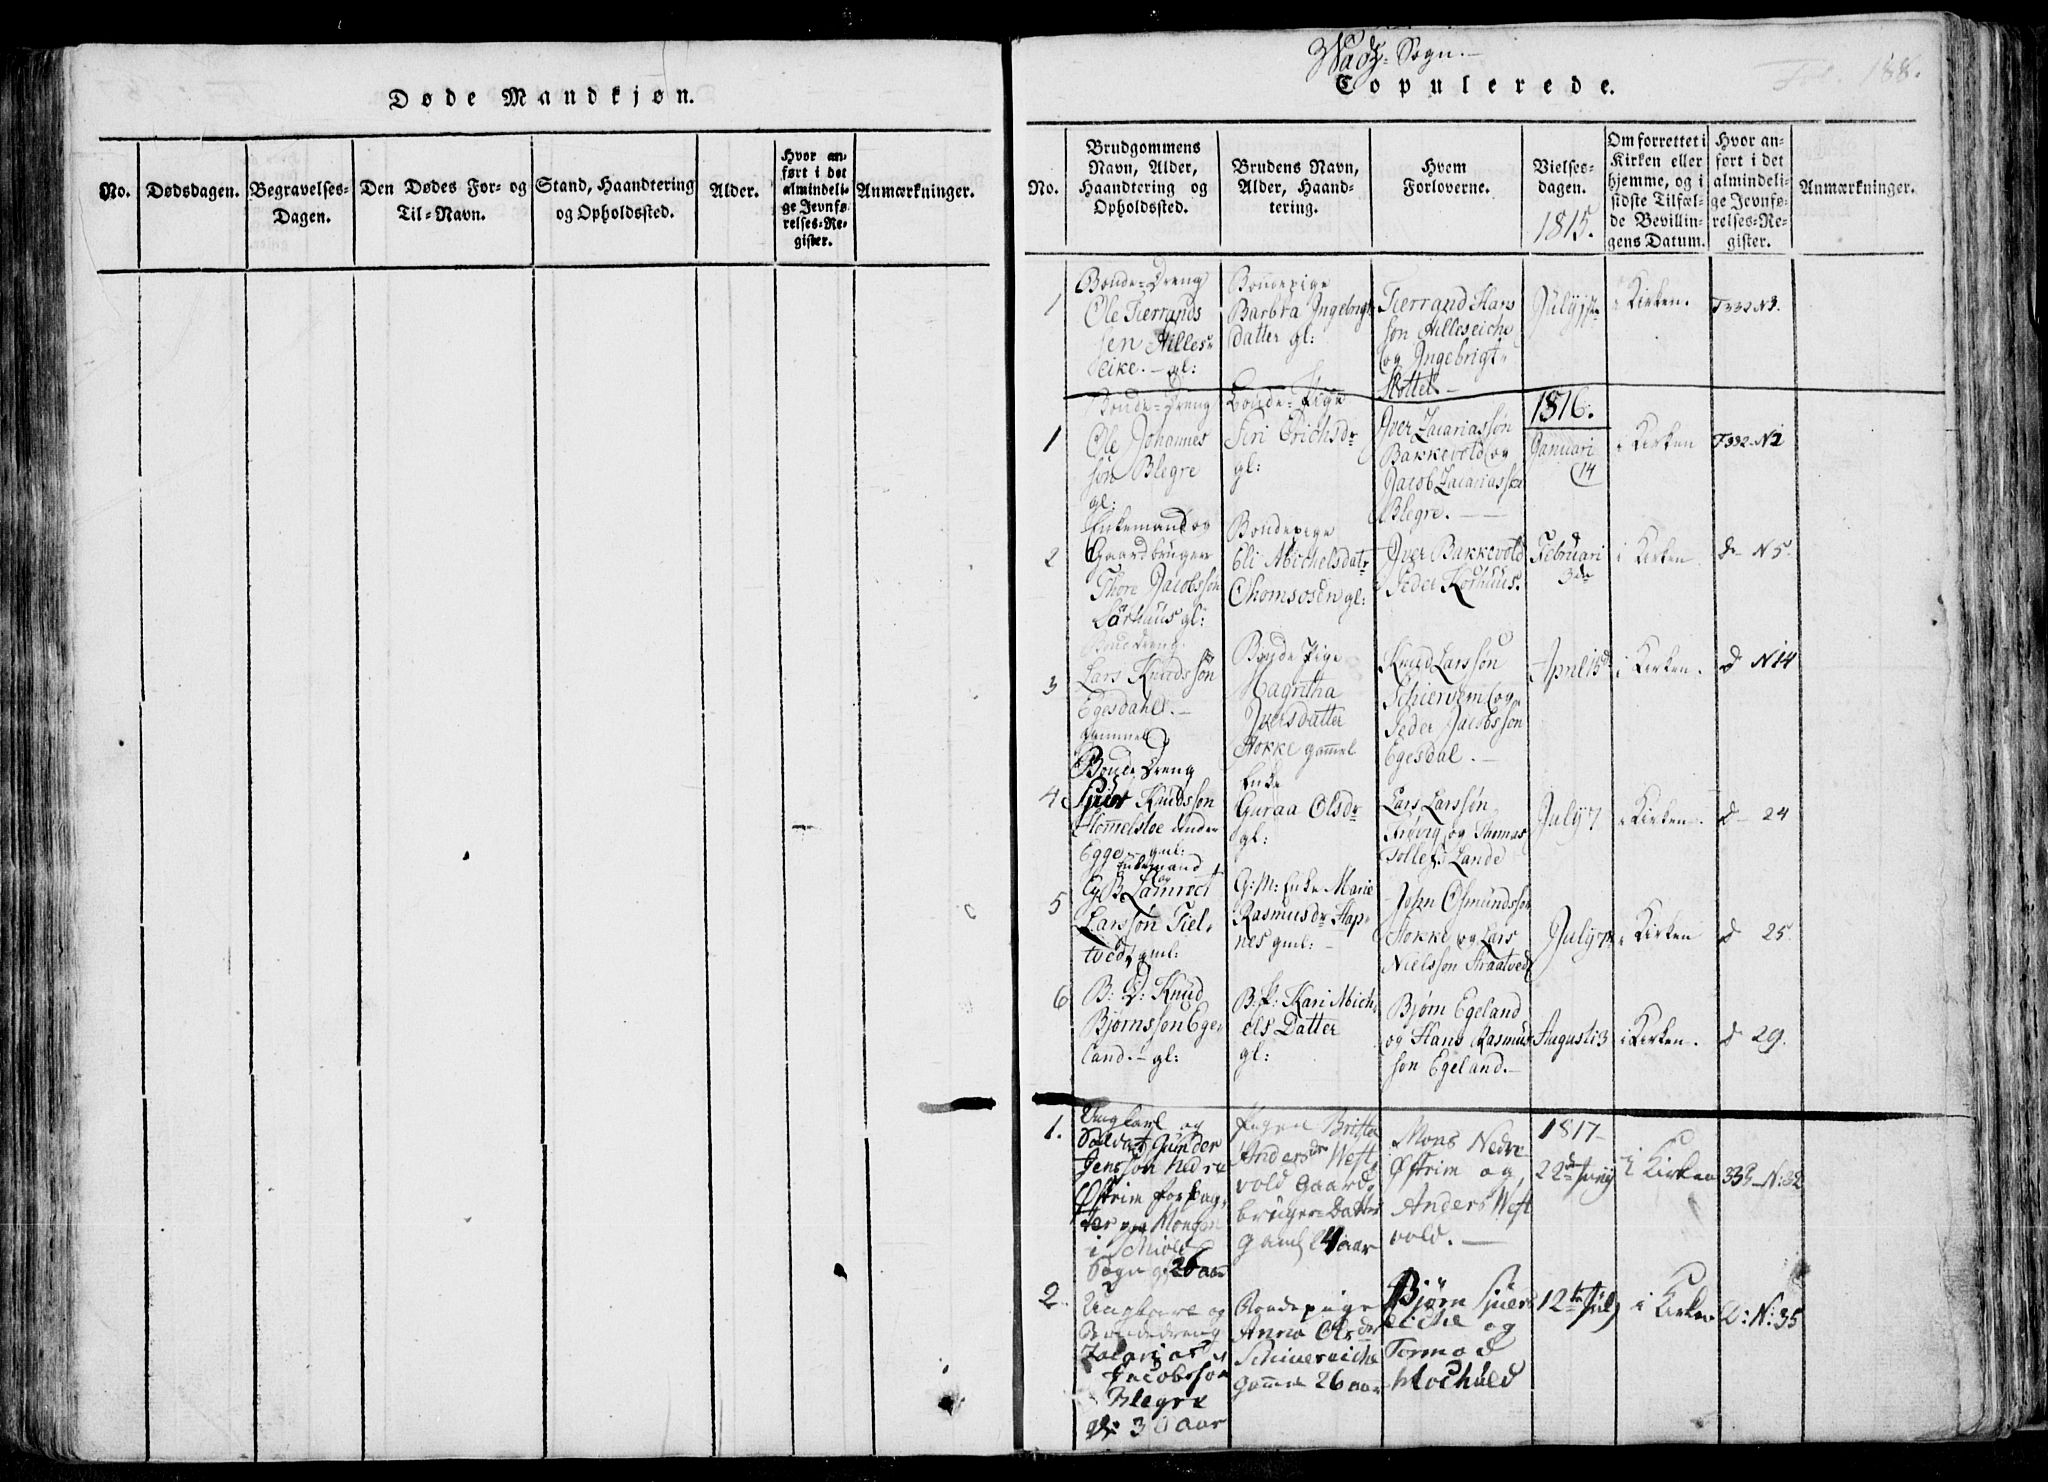 Døde Mandkjøn.
No.
Dødsdagen.
Begravelses-
Dagen.
Den Dødes For- og
Til-Navn.
Stand, Haandtering
og Opholdssted.
Alder.
Hvor an-
ført i det
almindeli-
ge Jevnfø-
relses-Re-
gister.
Anmærkninger.
Wads Sogn.
188.
Copulerede.
No.
Brudgommens
Navn, Alder,
Haandtering og
Opholdssted.
Brudens Navn,
Alder, Haand-
tering.
Hvem
Forloverne.
Vielses-
dagen.
1815.
Om forrettet i
Kirken eller
hjemme, og i
sidste Tilfæl-
de Bevillin-
gens Datum.
Hvor an-
ført i det
almindeli-
ge Jevnfø-
relses-Re-
gister.
Anmærkninger.
1
Bonde-Dreng
Ole Tierrands
sen Hilles-
eike. - gl:
Bondepige
Barbra Ingebrigt
datter gl:
Tierrand Hans
søn Hilleseiche
og Ingebrigt
July
i Kirken.
F332 N3.
1
Bonde-Dreng
Ole Johannes
søn Blegre
gl:
Bonde-Pige
Siri Erichsdr
gl:
Iver Zacariassøn
Bakkevold og
Jacob Zacariassøn
Blegre.
1816.
Januari
14
i Kirken
F332-N1
2
Enkemand og
Gaardbruger
Thore Jacobsson
gl:
Bondepige
Eli Michelsdatr
gl:
Iver Bakkevold
Peder
Februari
3de
i Kirken
do N5.
3
Bondedreng
Lars Knudssøn
Egesdahl.
gammel
Bonde Pige
Magritha
Iversdatter
Stokke gamel
Knud Larssøn
Schiervem og
Peder Jacobssøn
Egesdal.
April 15d
i Kirken.
d N14
4
Bonde Dreng
Sjur Knudsson
Egge - gml:
Enke
Guraa Olsdr
gl:
Lars Larssøn
og Thomas
Lande
July 7
i Kirken.
d 24
5
Enkemand
og
Larssøn Tiel-
tved, gml:
G: M: Enke Marie
Rasmusdr Hap-
nes gml:
John Osmundssøn
Stokke og Lars
Nielssøn Straatved
July 7
i Kirken
d 25.
6
B: D: Knud
Bjørnssøn Ege-
land. - gl:
B: P: Kari Mich-
els Datter
gl:
Bjørn Egeland
og Hans Rasmus
søn Egeland.
Augusti 3
i Kirken.
d 29.
1.
Ungkarl og
Soldat Gunder
Jenssøn Nedre
Østrim
i Schiold
Sogn gl 26 aar
Pigen Britta
Andersdr West
vold Gaard-
bruger-Datter
gaml 24 aar
Mons Nedre
Østrim og
Anders West
vold.
1817
22d Juny
i Kirken
333-N:32
2
Ungkarl og
Bondedreng
Zacarias
Jacobssøn
Blegre
gl: 30 aar
Bondepige
Anna Olsdr
Schiuereiche
gamel 26 aar
Bjørn Sjuers
eiche og
Tormod
12te July
i Kirken
D: N:35